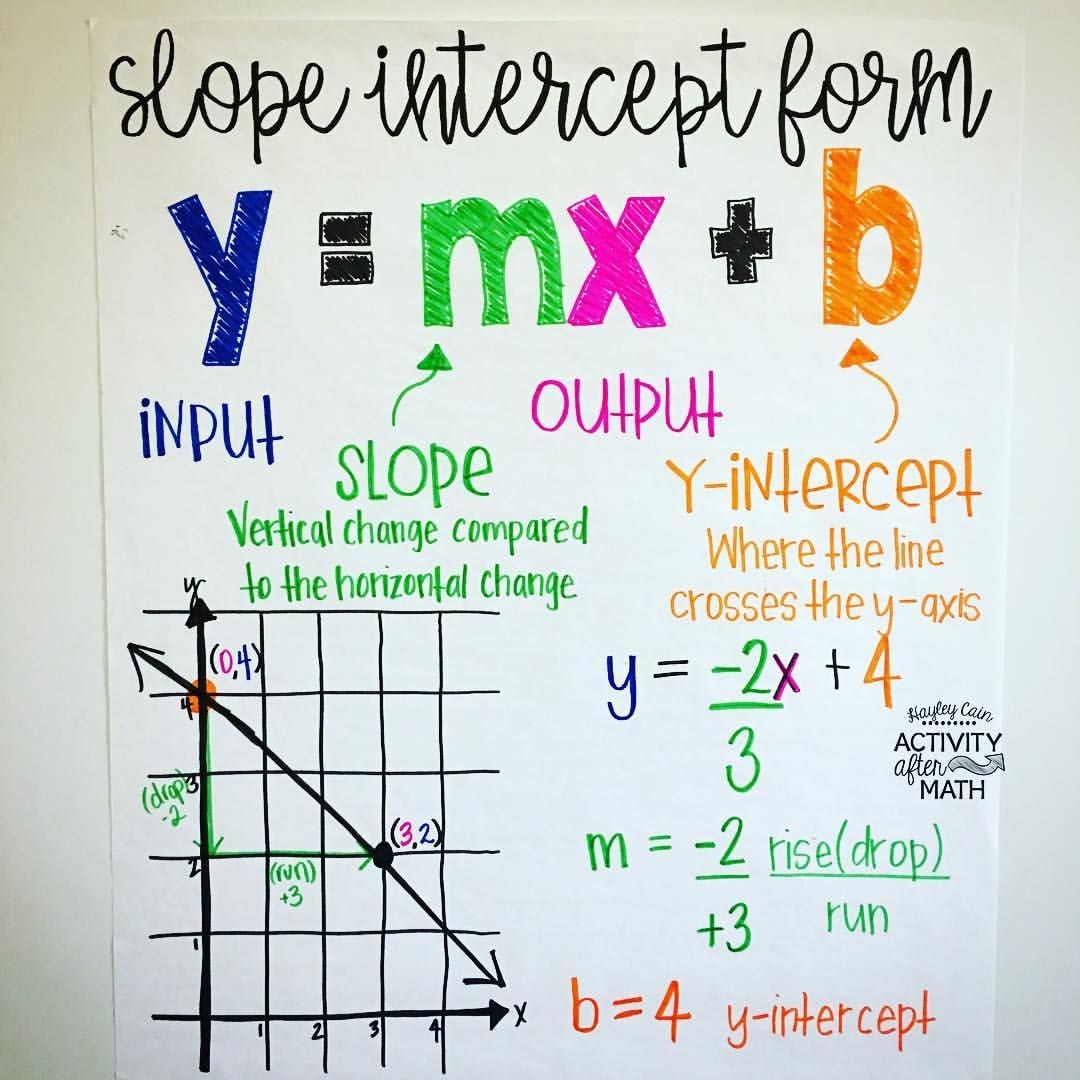 slope intercept form
y = mx + b
INPUT
OUTPUT
SLOPE
Vertical change compared
to the horizontal change
Y-INTERCEPT
Where the line
crosses the y-axis
y
(0,4)
4
3
(drop)
-2
2
(3,2)
(run)
+3
1
1 2 3 4 x
y = -2x + 4
3
Hayley Cain
ACTIVITY
after
MATH
m = -2 rise(drop)
+3 run
b = 4 y-intercept